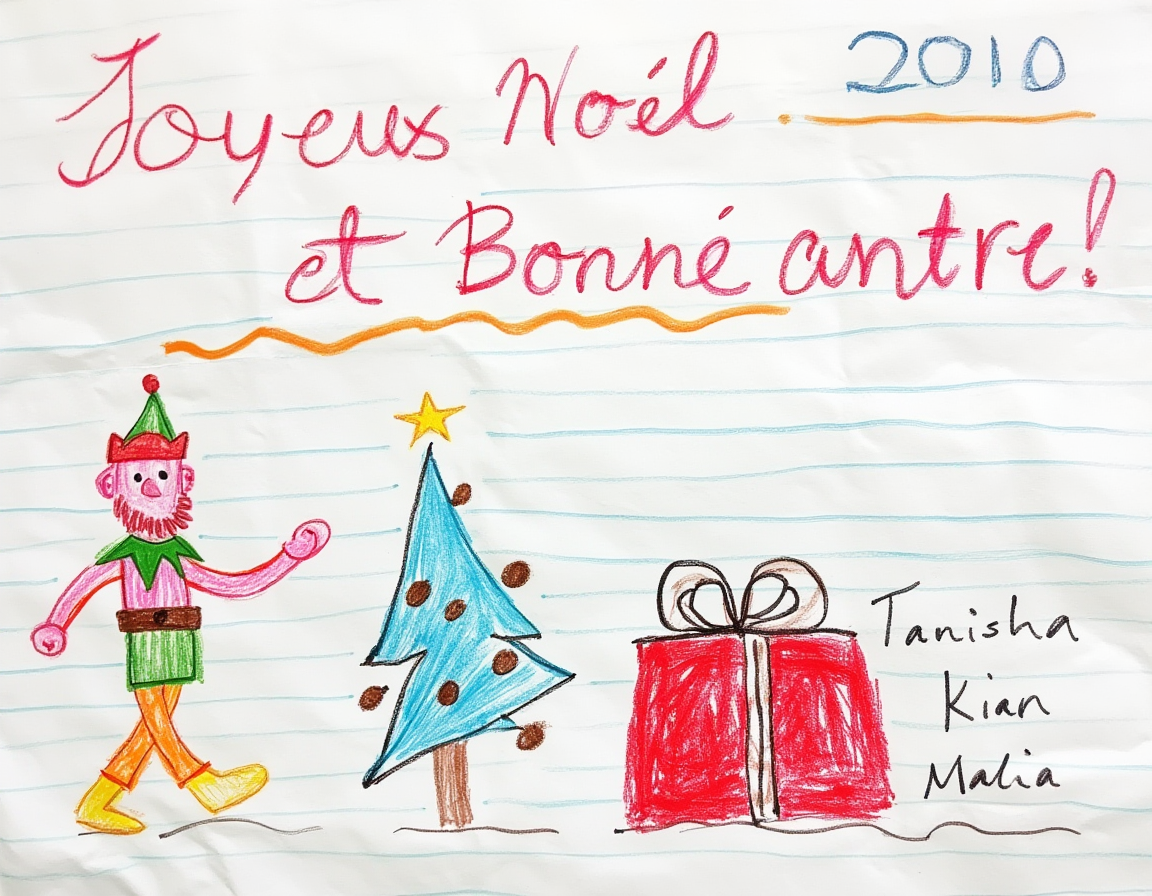 Joyeux Noél 2010
et Bonné antre!
Tanisha
Kian
Malia